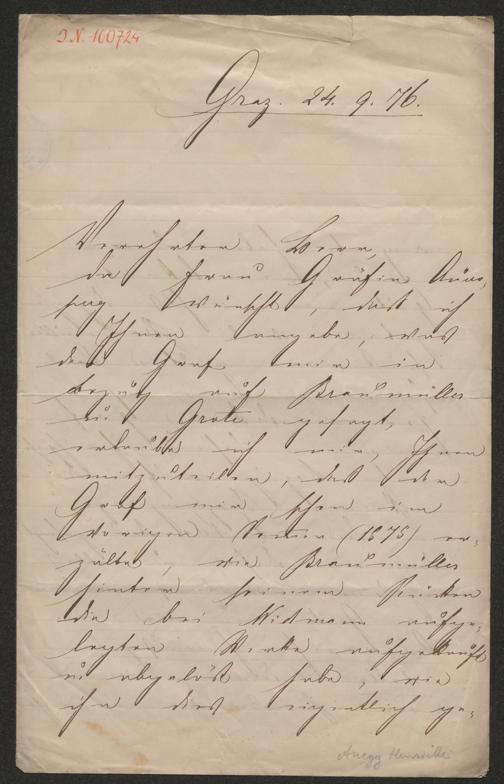 I.N. 160724
Graz. 24. 9. 76.
Verehrter Herr,
da Frau Gräfin Auers=
perg wünscht, daß ich
Ihnen angebe, was
der Graf mir in
bezug auf Braumüller
u. Grote gesagt,
erlaube ich mir, Ihnen
mitzuteilen, daß der
Graf mir schon im
vorigen Sommer (1875) er=
zälte, wie Braumüller
hinter seinem Rücken
die bei Weidmann aufge=
legten Werke aufgekauft
u. abgelöst habe, wie
ihn dies eigentlich ge=